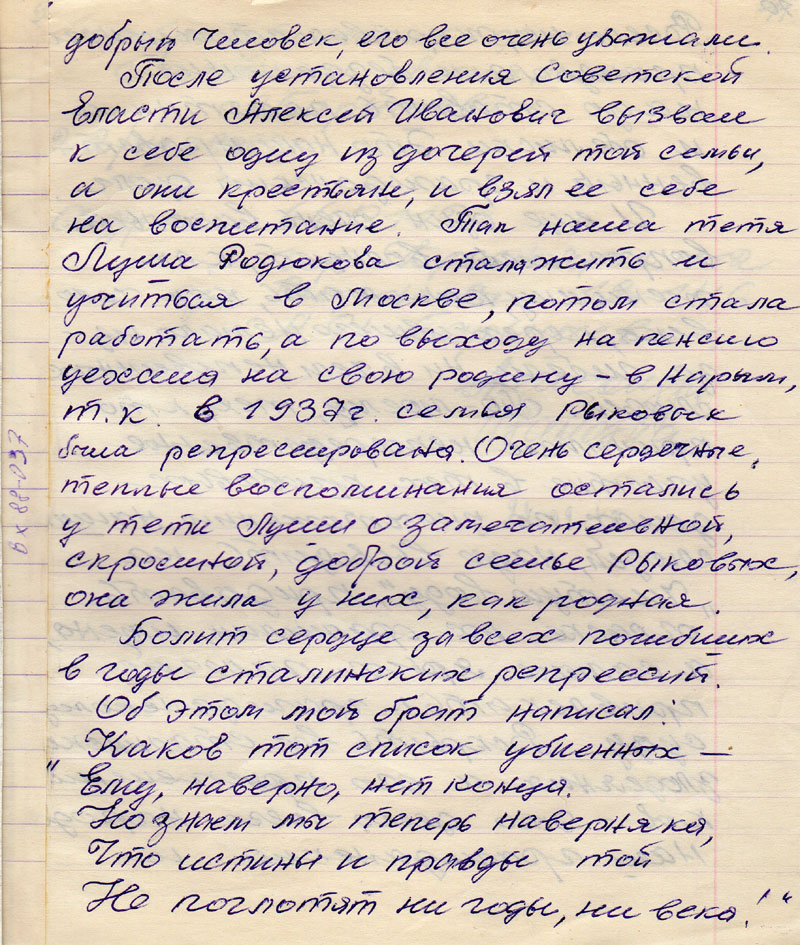 добрый человек, его все очень уважали.
После установления Советской
власти Алексей Иванович вызвал
к себе одну из дочерей той семьи,
а они крестьян, и взял ее себе
на воспитание. Так наша тетя
Луша Родюкова стала жить и
учиться в Москве, потом стала
работать, а по выходу на пенсию
уехала на свою родину – в Нарым,
т.к. в 1937г. семья Рыковых
была репрессирована. Очень сердечные,
теплые воспоминания остались
у тети Луши о замечательной,
скромной, доброй семье Рыковых,
она жила у них, как родная.
Болит сердце за всех погибших
в годы сталинских репрессий.
Об этом мой брат написал:
Каков тот список убиенных –
"Ему, наверно, нет конца.
Но знаем мы теперь наверняка,
Что истины и правды той
Не поглотят ни годы, ни века!"